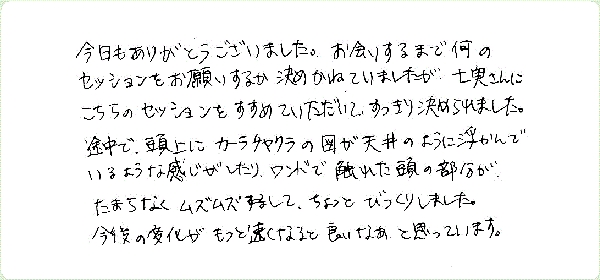 今日もありがとうございました。お会いするまで何の
セッションをお願いするか決めかねていましたが、七実さんに
こちらのセッションをすすめていただいて、すっきり決められました。
途中で、頭上にカーラチャクラの図が天井のように浮かんで
いるような感じがしたり、ワンドで触れた頭の部分が、
たまらなくムズムズするして、ちょっとびっくりしました。
今後の変化がもっと速くなると良いなあ、と思っています。